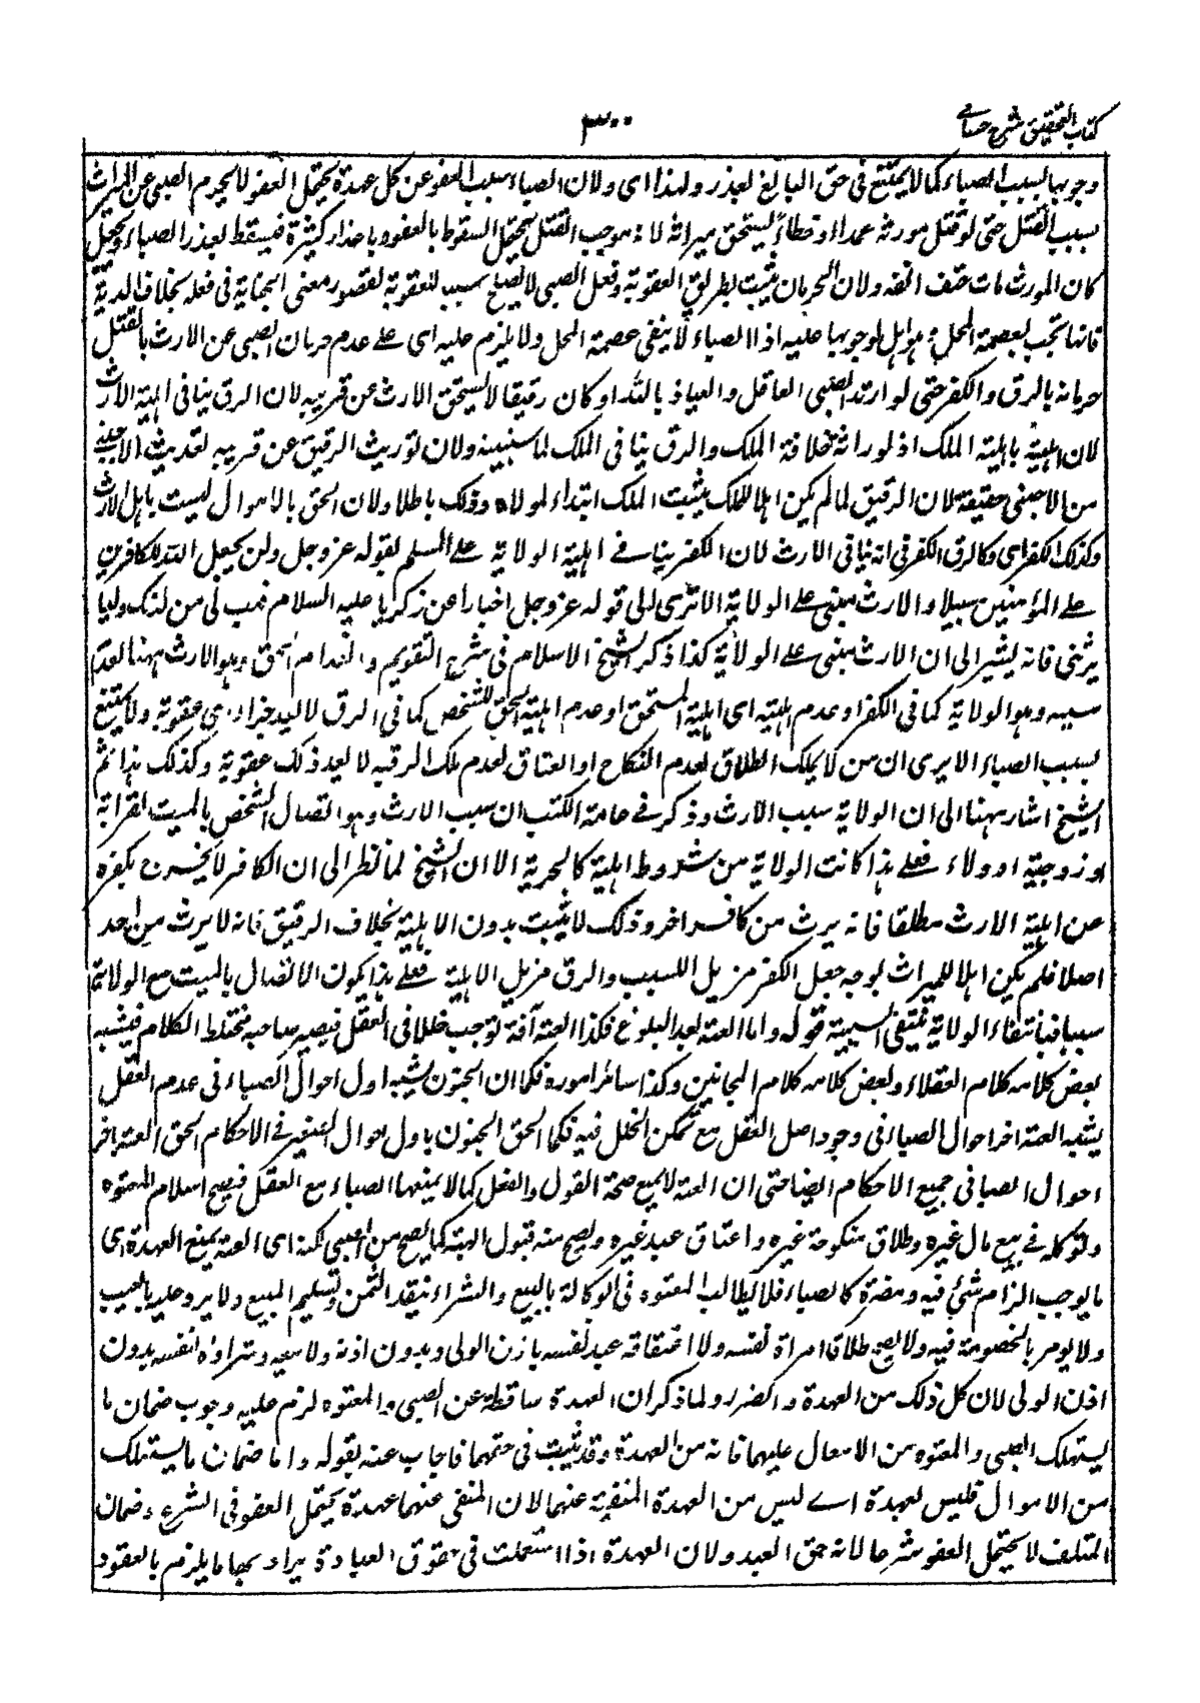 كتاب التحقيق شرح حسامي
٣٠٠
وجوبها بسبب الصباء كما لا يمتنع في حق البالغ لعذر ولهذا اى ولان الصباء سبب العفو عن كل عهدة يحتمل العفو لا يحرم الصبى عن الميراث
بسبب القتل حتى لو قتل مورثه عمدا او خطأ يستحق ميراثه لانه موجب القتل يحتمل السقوط بالعفو وباعذار كثيرة فيسقط بعذر الصباء ويجعل
كان المورث مات حتف انفه ولان الحرمان يثبت بطريق العقوبة وفعل الصبى لا يصلح سبب للعقوبة لقصور معنى الجناية في فعله بخلاف الدية
فانها تجب لعصمة المحل وهو اهل لوجوبها عليه اذ الصباء لا ينفى عصمة المحل ولا يلزم عليه اى على عدم حرمان الصبى عن الارث بالقتل
حرمانه بالرق والكفر حتى لو ارتد الصبى العاقل والعياذ بالله او كان رقيقا لا يستحق الارث عن قريبه لان الرق ينافى اهلية الارث
لان اهليته باهلية الملك اذ الوراثة خلافة الملك والرق ينافى الملك لما سنبينه ولان توريث الرقيق عن قريبه توريث الاجنبى
من الاجنبى حقيقة لان الرقيق لما لم يكن اهلا للملك يثبت الملك ابتداء لمولاه وذلك باطل ولان الحق بالاموال ليست باهل للارث
وكذلك الكفر اى وكالرق الكفر في انه ينافى الارث لان الكفر ينافى اهلية الولاية على المسلم لقوله عز وجل ولن يجعل الله للكافرين
على المؤمنين سبيلا والارث مبنى على الولاية الا ترى الى قوله عز وجل اخبارا عن زكريا عليه السلام فهب لى من لدنك وليا
يرثنى فانه يشير الى ان الارث مبنى على الولاية كذا ذكر الشيخ الاسلام في شرح التقويم وانعدام الحق وهو الارث ههنا لعدم
سببه وهو الولاية كما في الكفر او عدم اهليته اى اهلية المستحق او عدم اهلية الحق للشخص كما في الرق لا يعد جزاء اى عقوبة ولا يمتنع
بسبب الصباء الا يرى ان من لا يملك الطلاق لعدم النكاح او العتاق لعدم ملك الرقبة لا يعد ذلك عقوبة وكذلك هذا ثم
الشيخ اشار ههنا الى ان الولاية سبب الارث وذكر في عامة الكتب ان سبب الارث وهو اتصال الشخص بالميت لقرابة
او زوجية او ولاء فعلى هذا كانت الولاية من شروط اهلية كالحرية الا ان الشيخ لما نظر الى ان الكافر لا يخرج بكفره
عن اهلية الارث مطلقا فانه يرث من كافر اخر وذلك لا يثبت بدون الاهلية بخلاف الرقيق فانه لا يرث من احد
اصلا فلم يكن اهلا للميراث بوجه جعل الكفر مزيل للسبب والرق مزيل الاهلية فعلى هذا يكون الاتصال بالميت مع الولاية
سببا فبانتفاء الولاية ينتفى السببية قوله واما العته بعد البلوغ فكذا العته آفة توجب خللا في العقل فيصير صاحبه مختلط الكلام فيشبه
بعض كلامه كلام العقلاء وبعض كلامه كلام المجانين وكذا سائر اموره فكما ان الجنون يشبه اول احوال الصباء في عدم العقل
يشبه العته اخر احوال الصباء في وجود اصل العقل مع تمكن الخلل فيه فكما الحق الجنون باول احوال الصغير في الاحكام الحق العته باخر
احوال الصبا في جميع الاحكام ايضا حتى ان العته لا يمنع صحة القول والفعل كما لا يمنعها الصباء مع العقل فيصح اسلام المعتوه
وتوكله في بيع مال غيره وطلاق منكوحة غيره واعتاق عبد غيره ويصح منه قبول الهبة كما يصح من الصبى لكنه اى العته يمنع العهدة اى
ما يوجب الزام شئ فيه ومضرة كالصباء فلا يطالب المعتوه في الوكالة بالبيع والشراء بنقد الثمن وتسليم المبيع ولا يرد عليه بالعيب
ولا يومر بالخصومة فيه ولا يصح طلاق امراة نفسه ولا اعتاقه عبد نفسه باذن الولى وبدون اذنه ولا بيعه وشراؤه لنفسه بدون
اذن الولى لان كل ذلك من العهدة والضرر ولما ذكر ان العهدة ساقطة عن الصبى والمعتوه لزم عليه وجوب ضمان ما
يستهلك الصبى والمعتوه من الاموال عليهما فانه من العهدة وقد يثبت في حقهما فاجاب عنه بقوله واما ضمان ما يستهلك
من الاموال فليس بعهدة اے ليس من العهدة المنفية عنهما لان المنفى عنهما عهدة يحتمل العفو في الشرع وضمان
المتلف لا يحتمل العفو شرعا لانه حق العبد ولان العهدة اذا استعملت في حقوق العباد يراد بها ما يلزم بالعقود